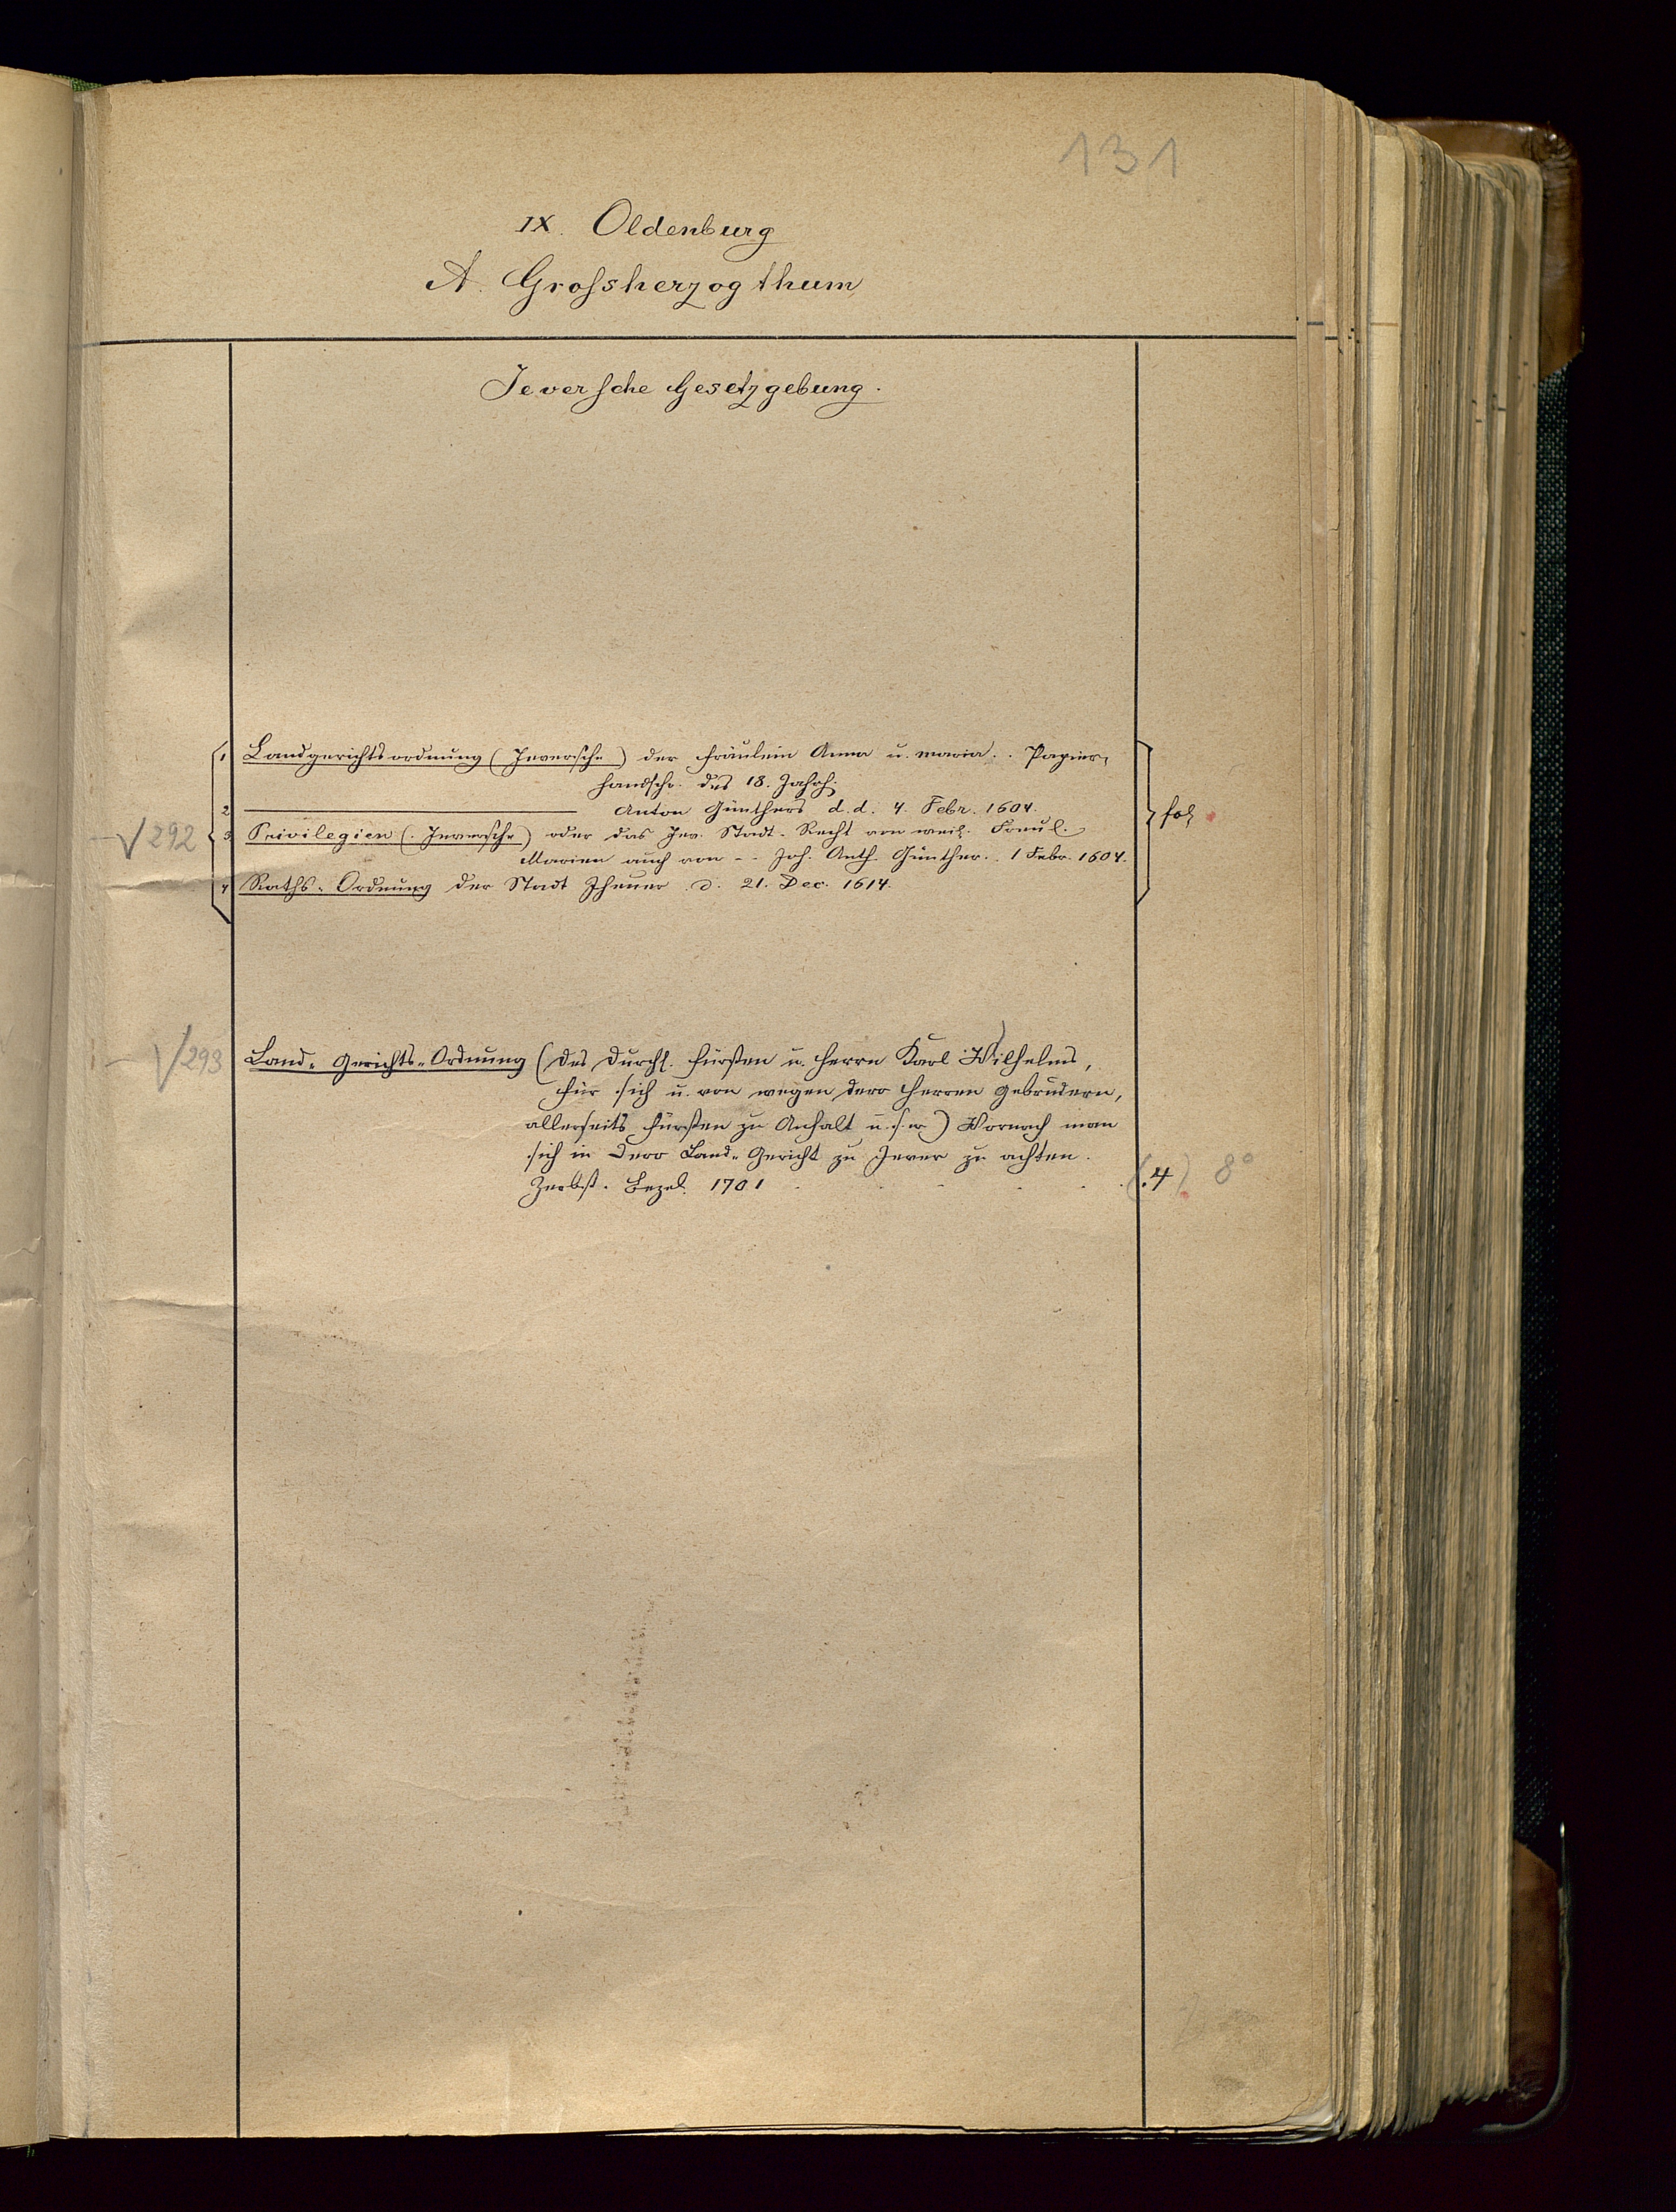 131
IX. Oldenburg
A. Grossherzogthum
Jeversche Gesetzgebung.
1 Landgerichtsordnung (Jeversche) der Fräulein Anna u. Maria. Papier-
handschr. des 18. Jahrh.
2 ——— Anton Günthers d. d. 4. Febr. 1604.
√292 3 Privilegien (Jeversche) oder das Jev. Stadt-Recht von weil. Freul.
Marien auch von -- Joh. Anth. Günther. 1 Febr. 1604.
fol
4 Raths-Ordnung der Stadt Jheuer d. 21. Dec. 1614.
√293 Land-Gerichts-Ordnung (des Durchl. Fürsten u. Herrn Karl Wilhelms,
für sich u. von wegen dero Herren Gebrüdern,
allerseits Fürsten zu Anhalt u.s.w) Wornach man
sich in Dero Land-Gericht zu Jever zu achten.
Zerbst. Bezel. 1701 (.4) 8°